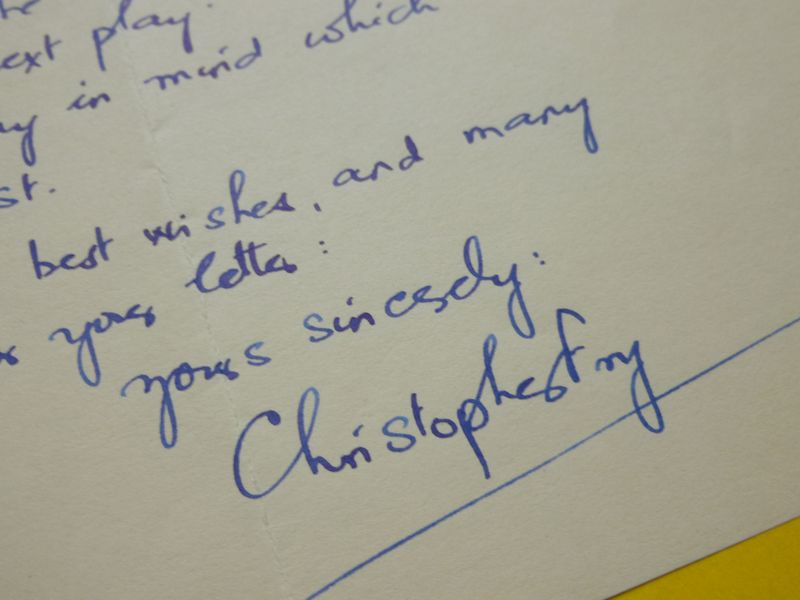 ext play.
in mind which
st.
best wishes, and many
your letter:
yours sincerely:
Christopher Fry